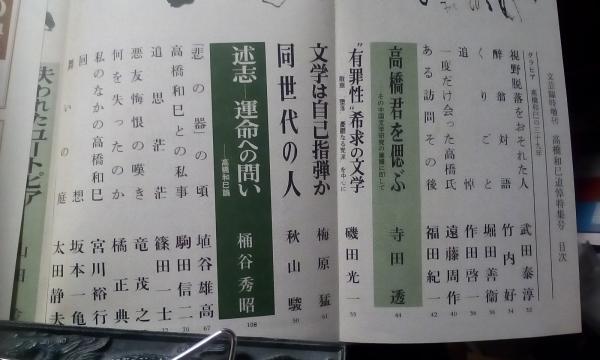 文芸臨時増刊 高橋和巳追悼特集号 目次
グラビア 高橋和巳の三十九年
視野脱落をおそれた人 武田泰淳 32
酔翁対語 竹内好 34
くりごと 堀田善衞
追悼 作田啓一
一度だけ会った高橋氏 遠藤周作 40
ある訪問その後 福田紀一 42
高橋君を偲ぶ 寺田透 44
―その中国文学研究の業績に即して
"有罪性"希求の文学 磯田光一 55
散華 堕落 憂鬱なる党派 を中心に
文学は自己指弾か 梅原猛 61
同世代の人 秋山駿 50
述志―運命への問い 桶谷秀昭 108
―高橋和巳論
「悲の器」の頃 埴谷雄高 67
高橋和巳との私事 駒田信二
追思茫茫 篠田一士
悪友悔恨の嘆き 竜茂之
何を失ったのか 橘正典
私のなかの高橋和巳 宮川裕行
回想 坂本一亀
舞いの庭 太田静夫
失われたユートピア 山田